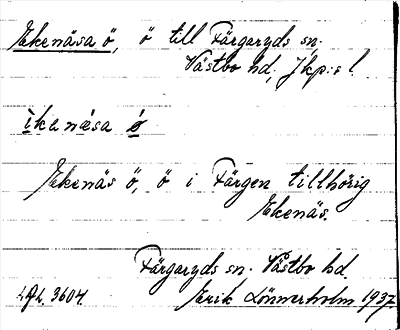 Ekenäsa ö, ö till Färgaryds sn.
Västbo hd. Jkp:s l.
ìkenäsa ö́
Ekenäs ö, ö i Färgen tillhörig
Ekenäs.
Färgaryds sn. Västbo hd.
3604. Erik Lönnerholm 1937